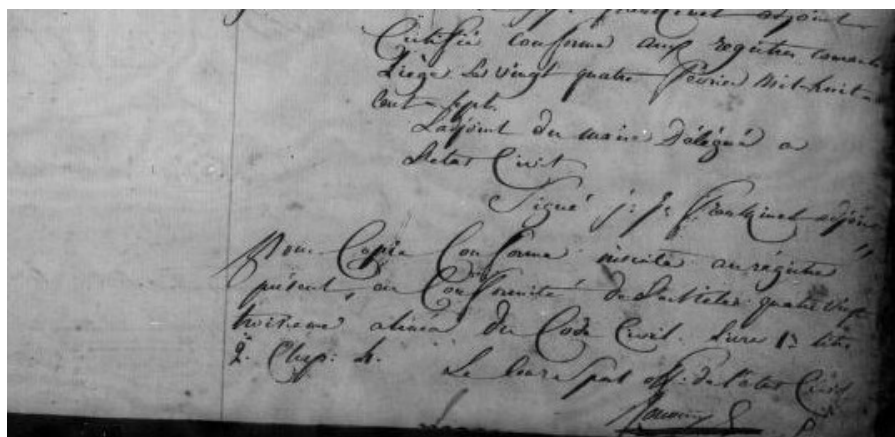 adjoint
Certifié conforme aux registres
Liège le vingt quatre fevrier mil-huit-
cent-sept.
L'adjoint du maire Délégué a
l'etat Civil
Signé j: j: adjoint
Pour Copie Conforme inscrite au régistre
présent, en Conformité de l'article quatre vingt
troisieme alinéa du Code Civil. Livre 1r titre
2. Chap: 4.
Le off: de l'etat Civil